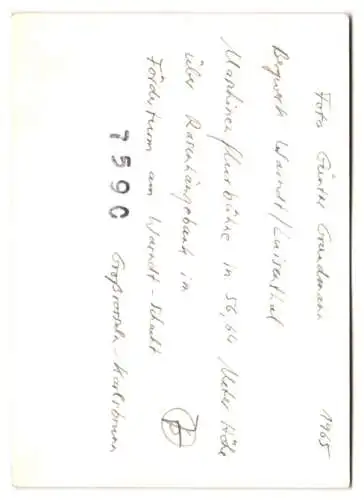 Foto Günter Grundmann 1965
Bergwerk Warndt/Luisenthal
Maschinenflurbühne in 56,64 Meter Höhe
über Rasenhängebank im
Förderturm am Warndt-Schacht
Großrosseln-Karlsbrunn
7590